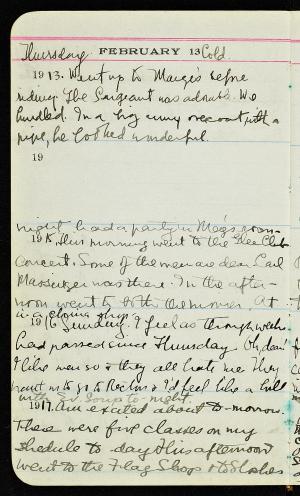 Thursday. FEBRUARY 13 Cold.
1913. Went up to Marge's before
riding. The Sargeant was adorable. We
hurdled. In a big army overcoat with a
pipe, he looked wonderful.
19
night had a party in Meg's room.
1915. This morning went to the Glee Club
Concert. Some of the men are dear. Carl
was there. In the after-
noon went to with the movies. At
1916 Sunday. I feel as though weeks
had passed since Thursday. Oh, don't
I like men so & they all hate me. They
want us to go to & I'd feel like a
with to-night.
1917. Am excited about to-morrow.
There were five classes on my
shedule to day. This afternoon
went to the Flag Shop &